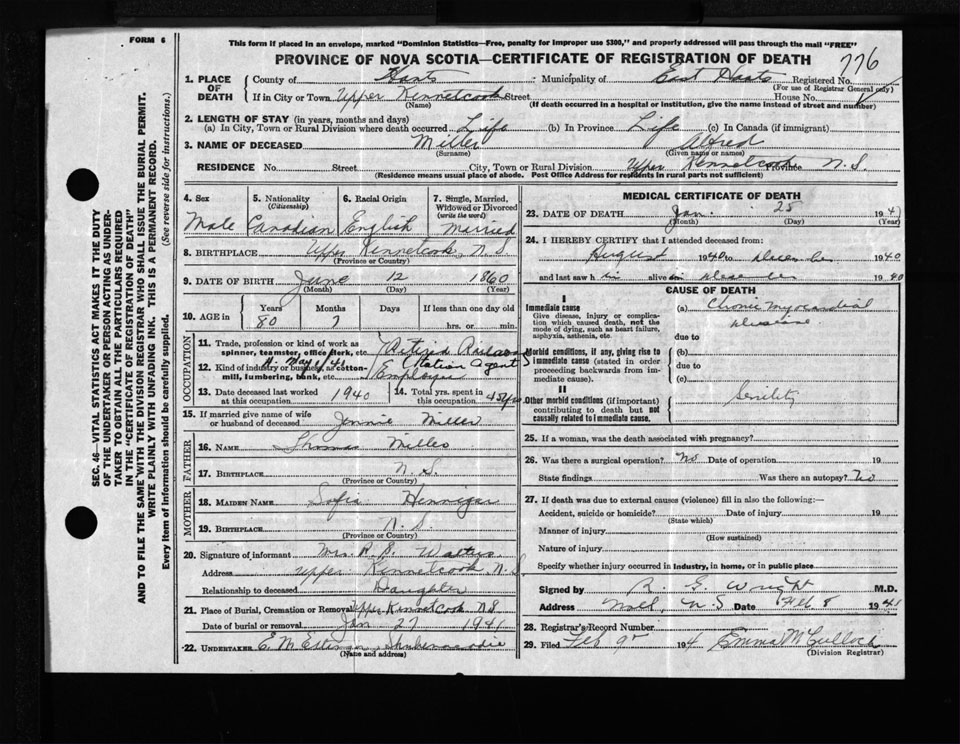 FORM 6
This form if placed in an envelope, marked "Dominion Statistics—Free, penalty for improper use $300," and properly addressed will pass through the mail "FREE"
PROVINCE OF NOVA SCOTIA—CERTIFICATE OF REGISTRATION OF DEATH
776
SEC. 46—VITAL STATISTICS ACT MAKES IT THE DUTY
OF THE UNDERTAKER OR PERSON ACTING AS UNDER-
TAKER TO OBTAIN ALL THE PARTICULARS REQUIRED
IN THE "CERTIFICATE OF REGISTRATION OF DEATH"
AND TO FILE THE SAME WITH THE DIVISION REGISTRAR WHO SHALL ISSUE THE BURIAL PERMIT.
WRITE PLAINLY WITH UNFADING INK. THIS IS A PERMANENT RECORD.
Every item of information should be carefully supplied. (See reverse side for instructions.)
1. PLACE OF DEATH
County of Hants Municipality of East Hants Registered No.
(Name) (For use of Registrar General only)
If in City or Town Upper Kennetcook Street House No.
(If death occurred in a hospital or institution, give the name instead of street and number)
2. LENGTH OF STAY (in years, months and days)
(a) In City, Town or Rural Division where death occurred Life (b) In Province Life (c) In Canada (if immigrant)
3. NAME OF DECEASED Miller Alfred
(Surname) (Given name or names)
RESIDENCE No. Street City, Town or Rural Division Upper Kennetcook Province N.S.
(Residence means usual place of abode. Post Office Address for residents in rural parts not sufficient)
4. Sex Male
5. Nationality (Citizenship) Canadian
6. Racial Origin English
7. Single, Married, Widowed or Divorced (write the word) Married
8. BIRTHPLACE Upper Kennetcook, N.S.
(Province or Country)
9. DATE OF BIRTH June 12 1860
(Month) (Day) (Year)
10. AGE in Years 80 Months 7 Days If less than one day old hrs. or min.
OCCUPATION
11. Trade, profession or kind of work as spinner, teamster, office clerk, etc. Retired Railway
12. Kind of industry or business, as cotton-mill, lumbering, bank, etc. Station Agent
Employee
13. Date deceased last worked at this occupation 1940
14. Total yrs. spent in this occupation
15. If married give name of wife or husband of deceased Jennie Miller
FATHER
16. NAME Thomas Miller
17. BIRTHPLACE N.S.
(Province or Country)
MOTHER
18. MAIDEN NAME Sofia Hennigar
19. BIRTHPLACE N.S.
(Province or Country)
20. Signature of informant Mrs. R. S. Walters
Address Upper Kennetcook N.S
Relationship to deceased Daughter
21. Place of Burial, Cremation or Removal Upper Kennetcook NS
Date of burial or removal Jan 27 1941
22. UNDERTAKER E. M. Shubenacadie
(Name and address)
MEDICAL CERTIFICATE OF DEATH
23. DATE OF DEATH Jan. 25 1941
(Month) (Day) (Year)
24. I HEREBY CERTIFY that I attended deceased from:
August 1940 to December 1940
and last saw him alive on December 1940
CAUSE OF DEATH
I
Immediate cause
Give disease, injury or complication which caused death, not the mode of dying, such as heart failure, asphyxia, asthenia, etc.
(a) Chronic myocardial disease
due to
Morbid conditions, if any, giving rise to immediate cause (stated in order proceeding backwards from immediate cause).
(b)
due to
(c)
II
Other morbid conditions (if important) contributing to death but not causally related to immediate cause.
Senility
25. If a woman, was the death associated with pregnancy?
26. Was there a surgical operation? No Date of operation 19
State findings Was there an autopsy? No
27. If death was due to external causes (violence) fill in also the following:—
Accident, suicide or homicide? Date of injury 19
(State which)
Manner of injury
(How sustained)
Nature of injury
Specify whether injury occurred in industry, in home, or in public place
Signed by R. G. Wright M.D.
Address Noel, N.S Date Feb 8 1941
28. Registrar's Record Number
29. Filed Feb 9th 194 Emma McCulloch
(Division Registrar)